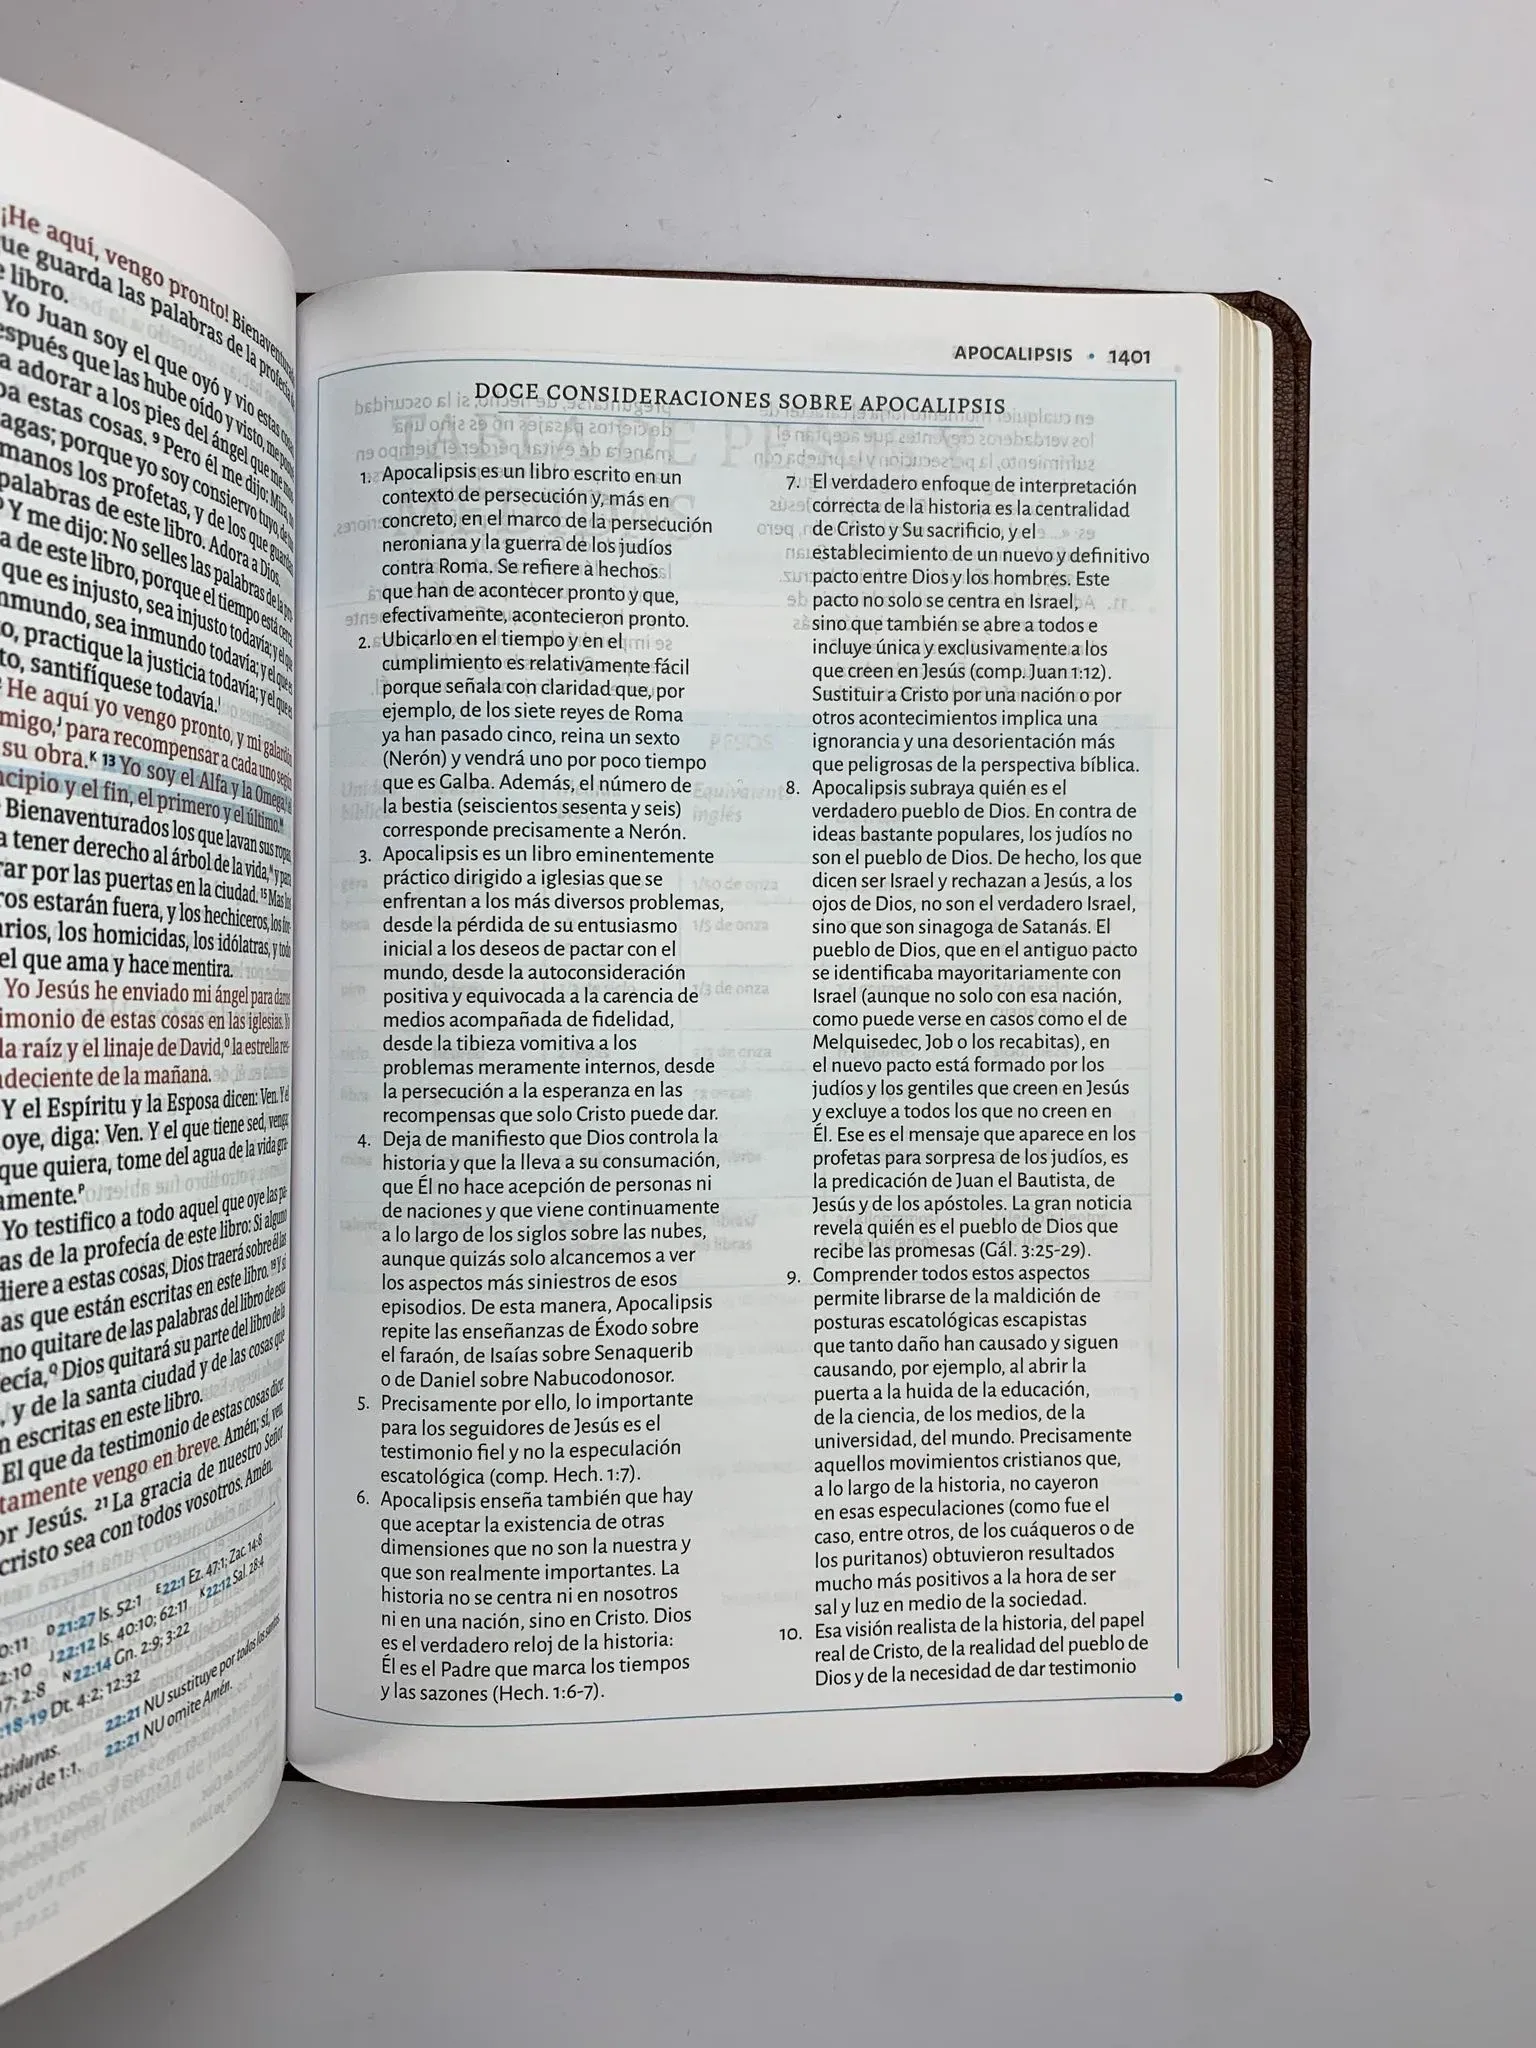 ¡He aquí, vengo pronto! Bienaventurado
que guarda las palabras de la profecía de
libro.
Yo Juan soy el que oyó y vio estas cosas.
después que las hube oído y visto, me postré
a adorar a los pies del ángel que me
estas cosas. 9 Pero él me dijo: Mira, no
hagas; porque yo soy consiervo tuyo, de tus
manos los profetas, y de los que guardan
palabras de este libro. Adora a Dios.
Y me dijo: No selles las palabras de la pro-
a de este libro, porque el tiempo está cerca.
que es injusto, sea injusto todavía; y el que
nmundo, sea inmundo todavía; y el que es
o, practique la justicia todavía; y el que es
to, santifíquese todavía.
He aquí yo vengo pronto, y mi galardón
migo,J para recompensar a cada uno según
su obra.K 13 Yo soy el Alfa y la Omega,
ncipio y el fin, el primero y el último.
Bienaventurados los que lavan sus ropas,
a tener derecho al árbol de la vida,N y para
rar por las puertas en la ciudad. 15 Mas los
ros estarán fuera, y los hechiceros, los for-
arios, los homicidas, los idólatras, y todo
el que ama y hace mentira.
Yo Jesús he enviado mi ángel para daros
imonio de estas cosas en las iglesias. Yo
la raíz y el linaje de David,O la estrella res-
ndeciente de la mañana.
Y el Espíritu y la Esposa dicen: Ven. Y el
oye, diga: Ven. Y el que tiene sed, venga;
que quiera, tome del agua de la vida gra-
amente.P
Yo testifico a todo aquel que oye las pa-
as de la profecía de este libro: Si alguno
diere a estas cosas, Dios traerá sobre él las
as que están escritas en este libro. 19 Y si
no quitare de las palabras del libro de esta
ecía,Q Dios quitará su parte del libro de la
, y de la santa ciudad y de las cosas que
n escritas en este libro.
El que da testimonio de estas cosas dice:
tamente vengo en breve. Amén; sí, ven,
or Jesús. 21 La gracia de nuestro Señor
cristo sea con todos vosotros. Amén.
0:11 D 21:27 Is. 52:1 E 22:1 Ez. 47:1; Zac. 14:8
2:10 J 22:12 Is. 40:10; 62:11 K 22:12 Sal. 28:4
17; 2:8 N 22:14 Gn. 2:9; 3:22
:18-19 Dt. 4:2; 12:32
stiduras. 22:21 NU sustituye por todos los santos.
de 1:1. 22:21 NU omite Amén.
APOCALIPSIS • 1401
DOCE CONSIDERACIONES SOBRE APOCALIPSIS
1. Apocalipsis es un libro escrito en un
contexto de persecución y, más en
concreto, en el marco de la persecución
neroniana y la guerra de los judíos
contra Roma. Se refiere a hechos
que han de acontecer pronto y que,
efectivamente, acontecieron pronto.
2. Ubicarlo en el tiempo y en el
cumplimiento es relativamente fácil
porque señala con claridad que, por
ejemplo, de los siete reyes de Roma
ya han pasado cinco, reina un sexto
(Nerón) y vendrá uno por poco tiempo
que es Galba. Además, el número de
la bestia (seiscientos sesenta y seis)
corresponde precisamente a Nerón.
3. Apocalipsis es un libro eminentemente
práctico dirigido a iglesias que se
enfrentan a los más diversos problemas,
desde la pérdida de su entusiasmo
inicial a los deseos de pactar con el
mundo, desde la autoconsideración
positiva y equivocada a la carencia de
medios acompañada de fidelidad,
desde la tibieza vomitiva a los
problemas meramente internos, desde
la persecución a la esperanza en las
recompensas que solo Cristo puede dar.
4. Deja de manifiesto que Dios controla la
historia y que la lleva a su consumación,
que Él no hace acepción de personas ni
de naciones y que viene continuamente
a lo largo de los siglos sobre las nubes,
aunque quizás solo alcancemos a ver
los aspectos más siniestros de esos
episodios. De esta manera, Apocalipsis
repite las enseñanzas de Éxodo sobre
el faraón, de Isaías sobre Senaquerib
o de Daniel sobre Nabucodonosor.
5. Precisamente por ello, lo importante
para los seguidores de Jesús es el
testimonio fiel y no la especulación
escatológica (comp. Hech. 1:7).
6. Apocalipsis enseña también que hay
que aceptar la existencia de otras
dimensiones que no son la nuestra y
que son realmente importantes. La
historia no se centra ni en nosotros
ni en una nación, sino en Cristo. Dios
es el verdadero reloj de la historia:
Él es el Padre que marca los tiempos
y las sazones (Hech. 1:6-7).
7. El verdadero enfoque de interpretación
correcta de la historia es la centralidad
de Cristo y Su sacrificio, y el
establecimiento de un nuevo y definitivo
pacto entre Dios y los hombres. Este
pacto no solo se centra en Israel,
sino que también se abre a todos e
incluye única y exclusivamente a los
que creen en Jesús (comp. Juan 1:12).
Sustituir a Cristo por una nación o por
otros acontecimientos implica una
ignorancia y una desorientación más
que peligrosas de la perspectiva bíblica.
8. Apocalipsis subraya quién es el
verdadero pueblo de Dios. En contra de
ideas bastante populares, los judíos no
son el pueblo de Dios. De hecho, los que
dicen ser Israel y rechazan a Jesús, a los
ojos de Dios, no son el verdadero Israel,
sino que son sinagoga de Satanás. El
pueblo de Dios, que en el antiguo pacto
se identificaba mayoritariamente con
Israel (aunque no solo con esa nación,
como puede verse en casos como el de
Melquisedec, Job o los recabitas), en
el nuevo pacto está formado por los
judíos y los gentiles que creen en Jesús
y excluye a todos los que no creen en
Él. Ese es el mensaje que aparece en los
profetas para sorpresa de los judíos, es
la predicación de Juan el Bautista, de
Jesús y de los apóstoles. La gran noticia
revela quién es el pueblo de Dios que
recibe las promesas (Gál. 3:25-29).
9. Comprender todos estos aspectos
permite librarse de la maldición de
posturas escatológicas escapistas
que tanto daño han causado y siguen
causando, por ejemplo, al abrir la
puerta a la huida de la educación,
de la ciencia, de los medios, de la
universidad, del mundo. Precisamente
aquellos movimientos cristianos que,
a lo largo de la historia, no cayeron
en esas especulaciones (como fue el
caso, entre otros, de los cuáqueros o de
los puritanos) obtuvieron resultados
mucho más positivos a la hora de ser
sal y luz en medio de la sociedad.
10. Esa visión realista de la historia, del papel
real de Cristo, de la realidad del pueblo de
Dios y de la necesidad de dar testimonio